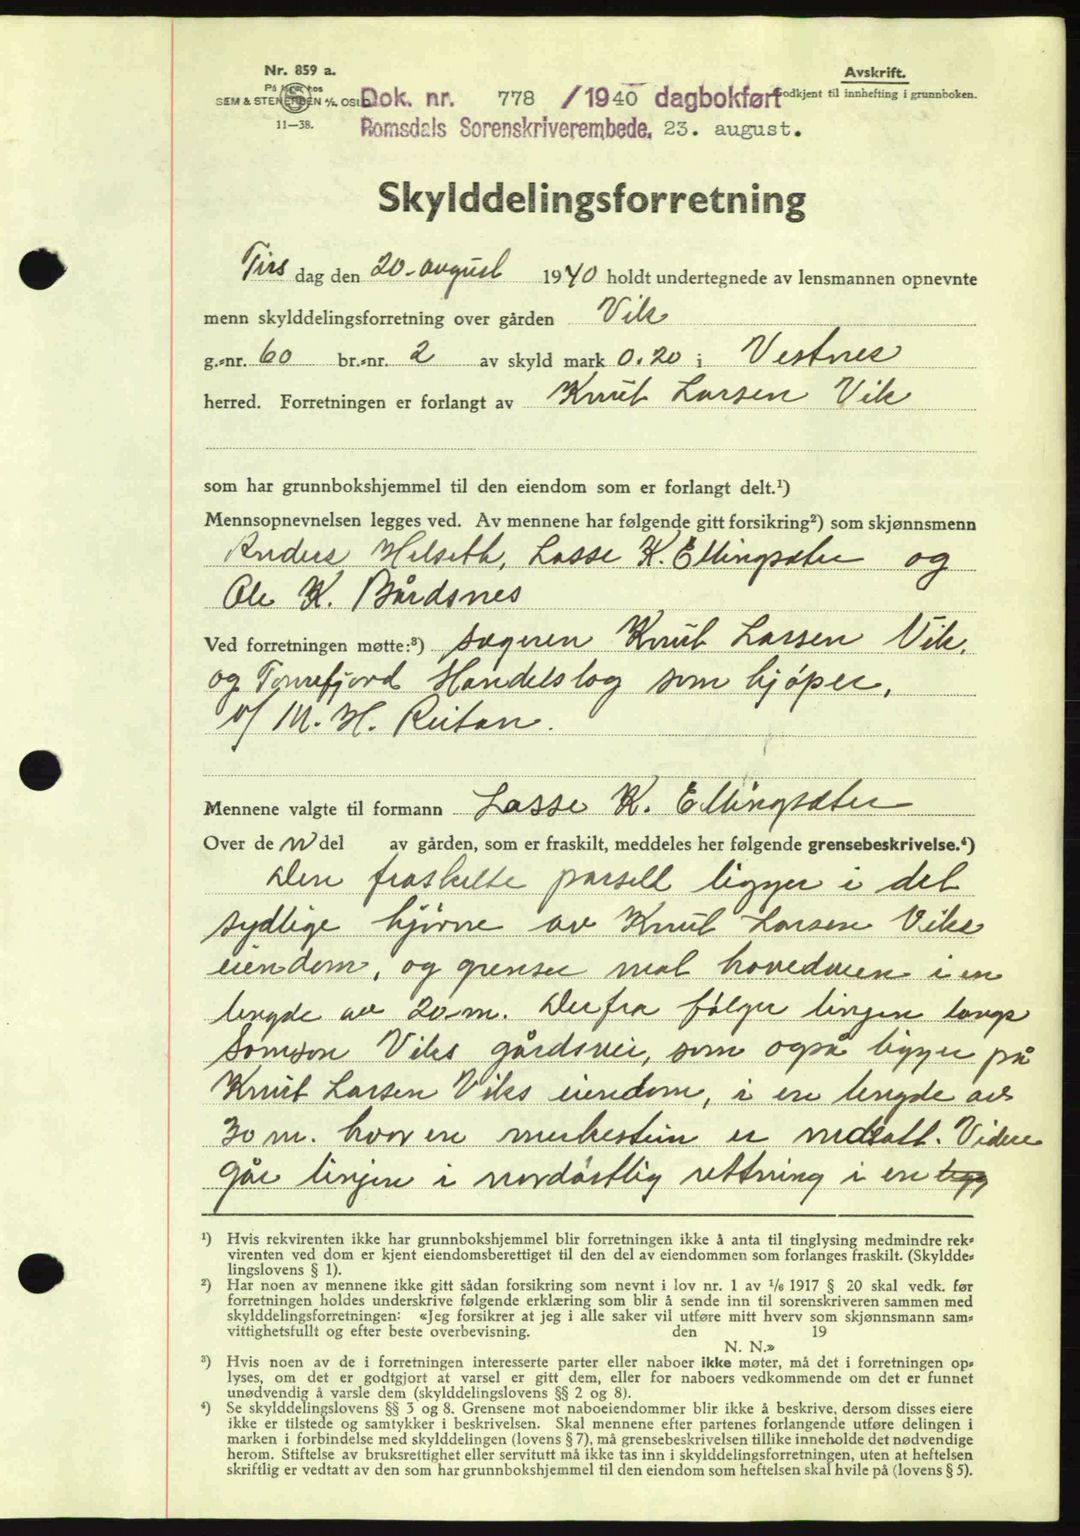 Nr. 859 a.
Avskrift.
SEM & STENERSEN A/S. OSLO
Godkjent til innhefting i grunnboken.
11—38.
Dok. nr. 778 /1940 dagbokført
Romsdals Sorenskriverembede, 23. august.
Skylddelingsforretning
Tirs dag den 20. august 1940 holdt undertegnede av lensmannen opnevnte
menn skylddelingsforretning over gården Vik
g.-nr. 60 br.-nr. 2 av skyld mark 0.20 i Vestnes
herred. Forretningen er forlangt av Knut Larsen Vik
som har grunnbokshjemmel til den eiendom som er forlangt delt.¹)
Mennsopnevnelsen legges ved. Av mennene har følgende gitt forsikring²) som skjønnsmenn
Anders Helseth, Lasse K. Ellingsæter og
Ole K. Bårdsnes
Ved forretningen møtte:³) Knut Larsen Vik,
og Tomrefjord Handelslag som kjøper,
v/ M. H. Reitan.
Mennene valgte til formann Lasse K. Ellingsæter
Over de n del av gården, som er fraskilt, meddeles her følgende grensebeskrivelse.⁴)
Den fraskilte parsell ligger i det
sydlige hjørne av Knut Larsen Viks
eiendom, og grenser mot hovedveien i en
lengde av 20 m. Derfra følger linjen langs
Samson Viks gårdsvei, som også ligger på
Knut Larsen Viks eiendom, i en lengde av
30 m. hvor en merkestein er nedsatt. Videre
går linjen i nordøstlig retning i en
¹) Hvis rekvirenten ikke har grunnbokshjemmel blir forretningen ikke å anta til tinglysing medmindre rek-
virenten ved dom er kjent eiendomsberettiget til den del av eiendommen som forlanges fraskilt. (Skyldde-
lingslovens § 1).
²) Har noen av mennene ikke gitt sådan forsikring som nevnt i lov nr. 1 av 1/6 1917 § 20 skal vedk. før
forretningen holdes underskrive følgende erklæring som blir å sende inn til sorenskriveren sammen med
skylddelingsforretningen: «Jeg forsikrer at jeg i alle saker vil utføre mitt hverv som skjønnsmann sam-
vittighetsfullt og efter beste overbevisning. den 19
N. N.»
³) Hvis noen av de i forretningen interesserte parter eller naboer ikke møter, må det i forretningen op-
lyses, om det er godtgjort at varsel er gitt dem, eller for naboers vedkommende om det er funnet
unødvendig å varsle dem (skylddelingslovens §§ 2 og 8).
⁴) Se skylddelingslovens §§ 3 og 8. Grensene mot naboeiendommer blir ikke å beskrive, dersom disses eiere
ikke er tilstede og samtykker i beskrivelsen. Skal mennene efter partenes forlangende utføre delingen i
marken i forbindelse med skylddelingen (lovens § 7), må grensebeskrivelsen tillike inneholde det nødvendige
herom. Stiftelse av bruksrettighet eller servitutt må ikke tas inn i skylddelingsforretningen, uten at heftelsen
skriftlig er vedtatt av den som har grunnbokshjemmel til den eiendom som heftelsen skal hvile på (lovens § 5).